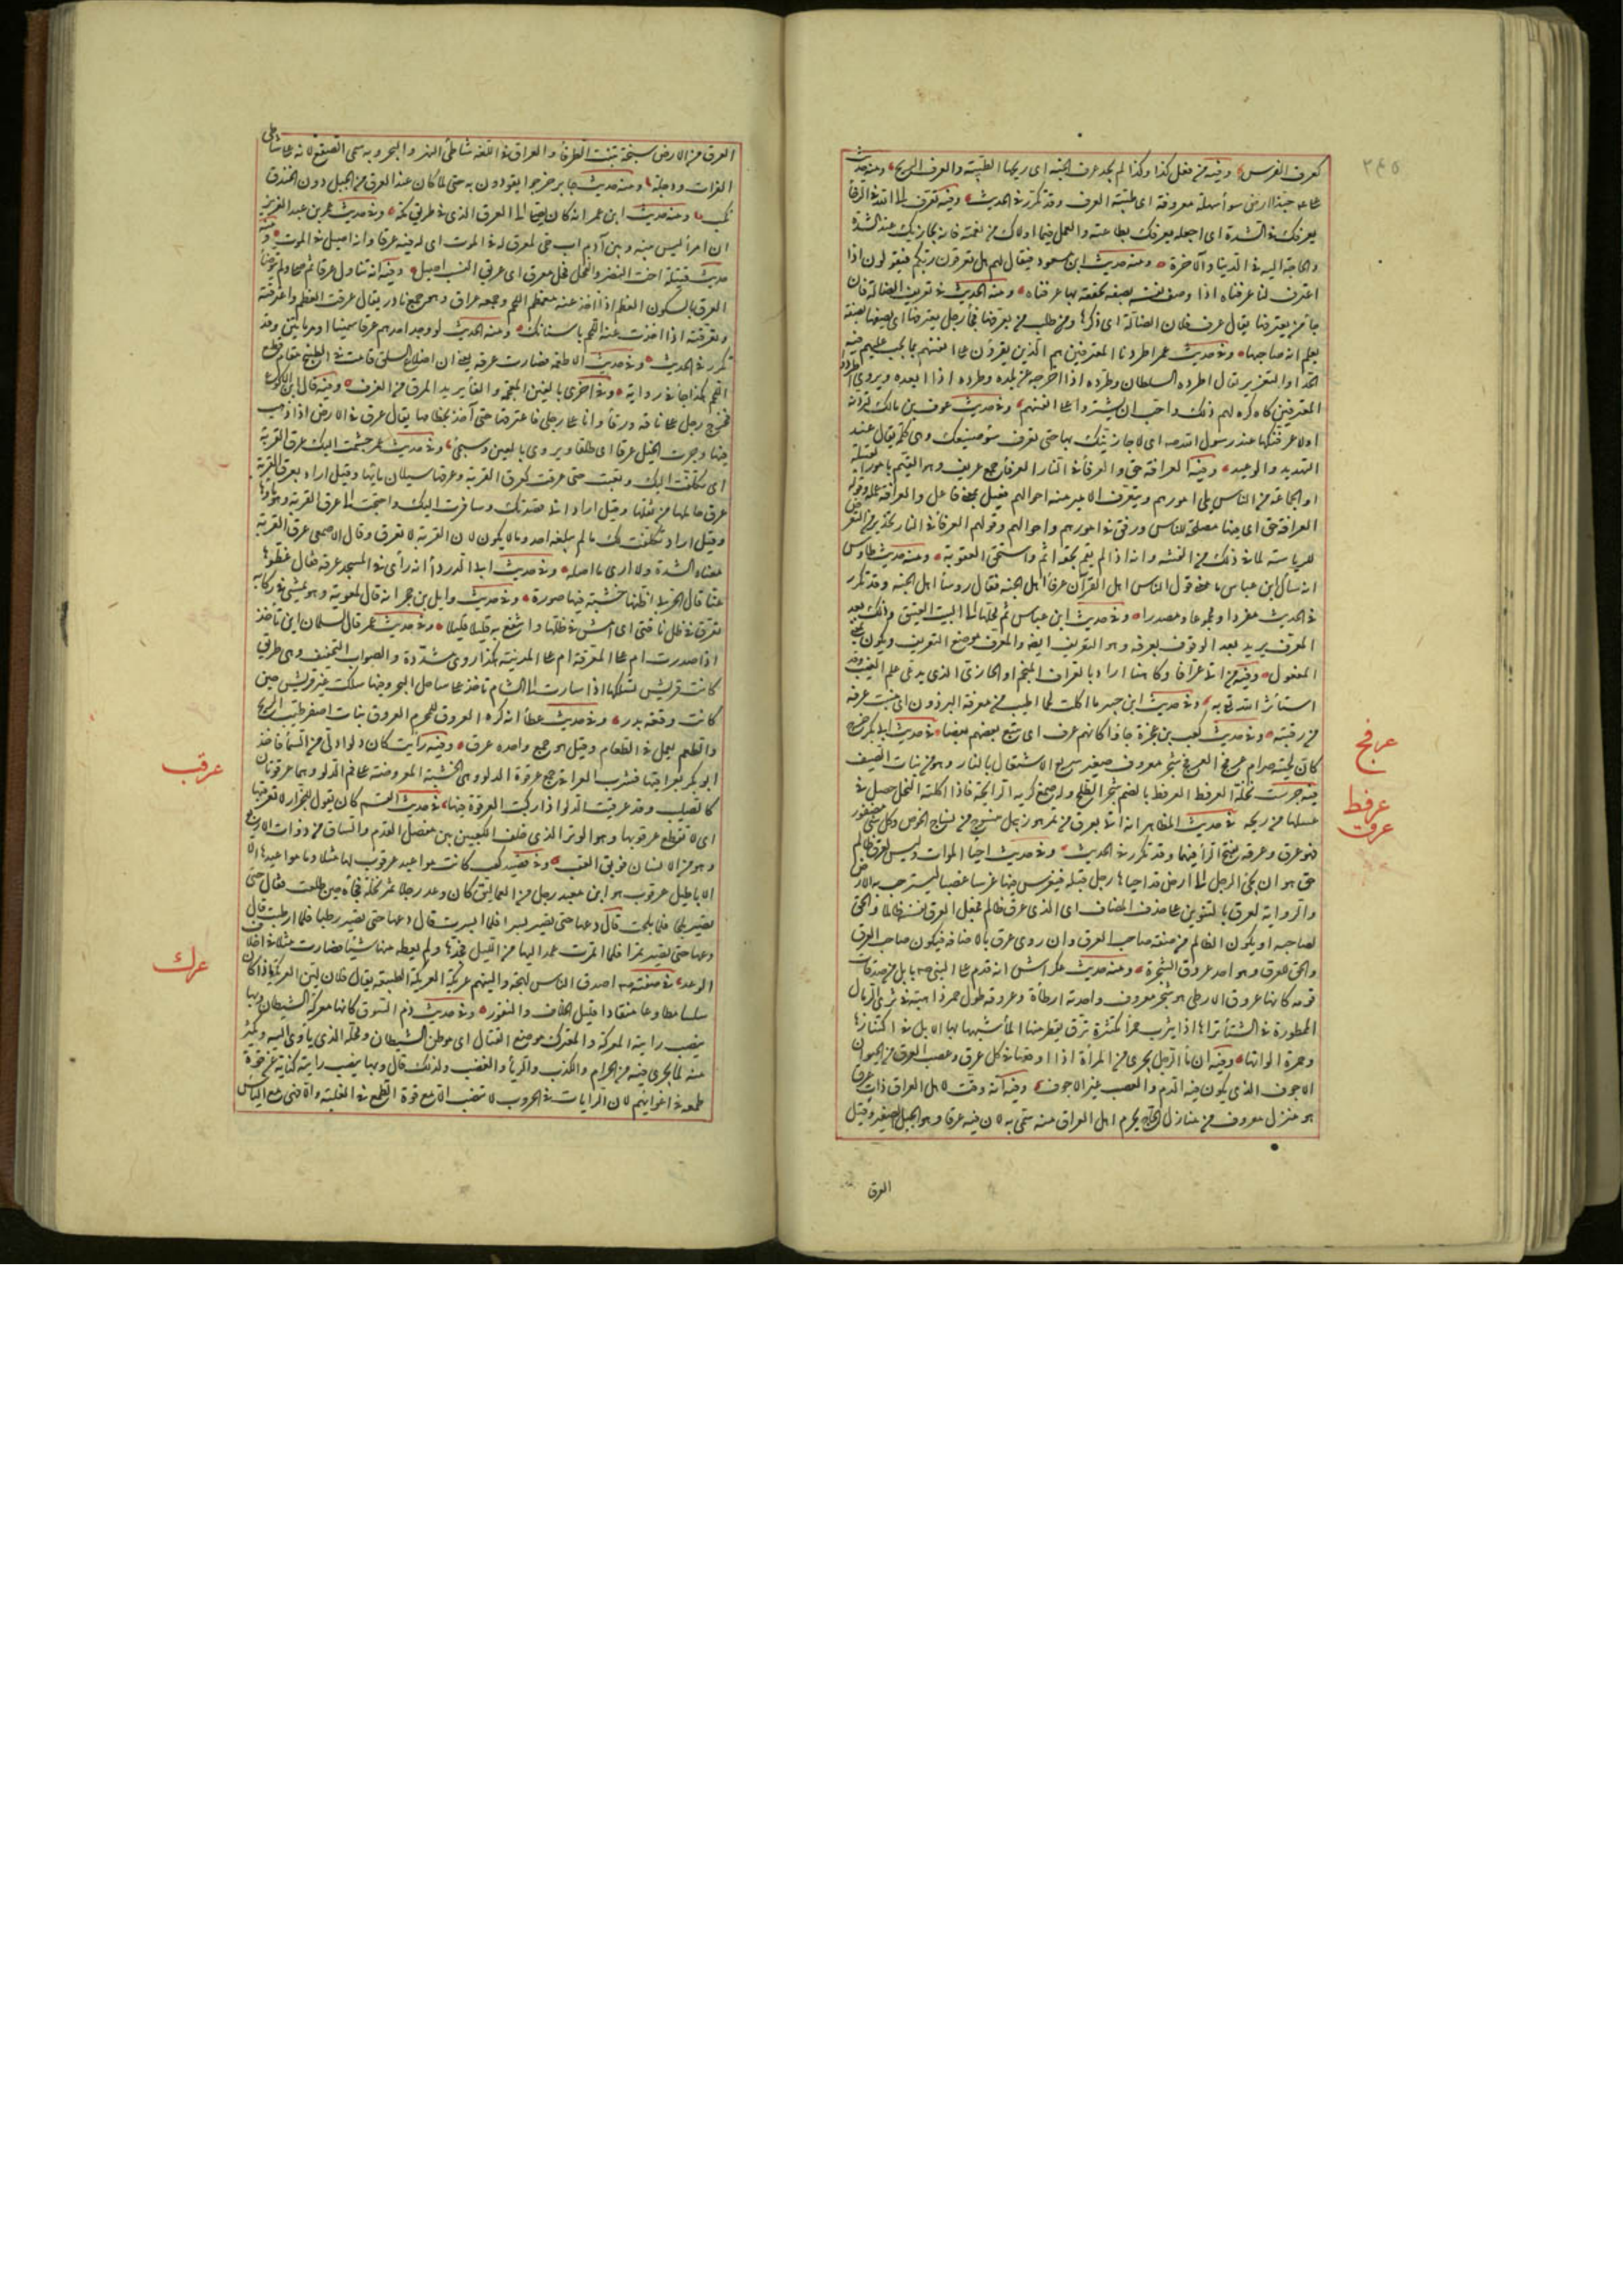 ٢٤٥
كعرف الفرس وفيه من فعل كذا وكذا لم يجد عرف الجنة اى ريحها الطيبة والعرف الريح ومنه حديث
يعرفك فى الشدة اى اجعله يعرفك بطاعته والعمل فيما اولاك من نعمته فانه يجازيك عند الشدة
والحاجة اليه فى الدنيا والآخرة ومنه حديث ابن مسعود فيقال لهم هل تعرفون ربكم فيقولون اذا
اعترف لنا عرفناه اذا وصف نفسه بصفة نحققه بها عرفناه ومنه الحديث فى تعريف الضالة فان
جاء من يعترفها يقال عرف فلان الضالة اى ذكرها ومن طلب من يعرفها فجاء رجل يعترفها اى يصفها بصفة
يعلم انه صاحبها وفى حديث عمر اطردنا المعترفين هم الذين يقرون على انفسهم بما يجب عليهم فيه
الحد او التعزير يقال اطرده السلطان وطرده اذا اخرجه عن بلده وطرده اذا ابعده ويروى
المعترفين كانه كره لهم ذلك واحب ان يستروا على انفسهم وفى حديث عوف بن مالك لتردنه
او لاعرفنكها عند رسول الله اى لاجازينك بها حتى تعرف سوء صنيعك وهى كلمة يقال عند
التهديد والوعيد وفيه العرافة حق والعرفاء فى النار العرفاء جمع عريف وهو القيم بامور القبيلة
او الجماعة من الناس يلى امورهم ويتعرف الامير منه احوالهم فعيل بمعنى فاعل والعرافة عمله وقوله
العرافة حق اى فيها مصلحة للناس ورفق فى امورهم واحوالهم وقوله العرفاء فى النار تحذير من التعرض
للرياسة لما فى ذلك من الفتنة وانه اذا لم يقم بحقه اثم واستحق العقوبة ومنه حديث طاوس
انه سال ابن عباس ما معنى قول الناس اهل القرآن عرفاء اهل الجنة فقال رؤساء اهل الجنة وقد تكرر
فى الحديث مفردا ومجموعا ومصدرا وفى حديث ابن عباس ثم محلها الى البيت العتيق وذلك بعد
المعرف يريد بعد الوقوف بعرفة وهو التعريف ايضا والمعرف موضع التعريف ويكون بمعنى
المفعول وفيه من اتى عرافا وكاهنا اراد بالعراف المنجم او الحازى الذى يدعى علم الغيب وقد
استاثر الله تعالى به وفى حديث ابن جبير ما اكلت لحما اطيب من معرفة البرذون اى منبت عرفه
من رقبته وفى حديث كعب بن عجرة جاؤا كانهم عرف اى يتبع بعضهم بعضا فى حديث ابى بكر
كان لحيته ضرام عرفج العرفج شجر معروف صغير سريع الاشتعال بالنار وهو من نبات الصيف
فيه جرست نحلة العرفط العرفط بالضم شجر الطلح وله صمغ كريه الرائحة فاذا اكلته النحل حصل فى
عسلها من ريحه فى حديث المظاهر انه اتى بعرق من تمر هو زبيل منسوج من نسائج الخوص وكل شئ مضفور
فهو عرق وعرقة بفتح الراء فيهما وقد تكرر فى الحديث وفى حديث احياء الموات وليس لعرق ظالم
حق هو ان يجئ الرجل الى ارض قد احياها رجل قبله فيغرس فيها غرسا غصبا ليستوجب به الارض
والرواية لعرق بالتنوين على حذف المضاف اى الذى عرق ظالم فجعل العرق نفسه ظالما والحق
لصاحبه او يكون الظالم من صفة صاحب العرق وان روى عرق بالاضافة فيكون صاحب العرق
والحق للعرق وهو احد عروق الشجرة ومنه حديث عكراش انه قدم على النبى بابل من صدقات
قومه كانها عروق الارطى هو شجر معروف واحدته ارطاة وعروقه طول حمر ذاهبة فى ثرى الرمال
الممطورة فى الشتاء تراها اذا اثيرت حمرا مكتنزة ترق يقطر منها الماء شبهها بها الابل فى اكتنازها
وحمرة الوانها وفيه ان ماء الرجل يجرى من المرأة اذا واقعها فى كل عرق وعصب العرق من الحيوان
الاجوف الذى يكون فيه الدم والعصب غير الاجوف وفيه انه وقت لاهل العراق ذات عرق
هو منزل معروف من منازل الحاج يحرم اهل العراق منه سمى به لان فيه عرقا وهو الجبل الصغير وقيل
العرق
عرفج
عرفط
عرق
العرق من الارض سبخة تنبت الطرفاء والعراق فى اللغة شاطئ النهر والبحر وبه سمى الصقع لانه على شاطئ
الفرات ودجلة ومنه حديث جابر خرجوا يقودون به حتى لما كان عند العرق من الجبل دون الخندق
نكب ومنه حديث ابن عمر انه كان يصلى الى العرق الذى فى طريق مكة وفى حديث عمر بن عبد العزيز
ان امرأ ليس بينه وبين آدم اب حى لمعرق له فى الموت اى له فيه عرقا وانه اصيل فى الموت ومنه
حديث قتيلة اخت النضر والفحل فحل معرق اى عريق النسب اصيل وفيه انه تناول عرقا ثم صلى ولم يتوضأ
العرق بالسكون العظم اذا اخذ عنه معظم اللحم وجمعه عراق وهو جمع نادر يقال عرقت العظم واعترقته
وتعرقته اذا اخذت عنه اللحم باسنانك ومنه الحديث لو وجد احدهم عرقا سمينا او مرماتين وقد
تكرر فى الحديث وفى حديث الاطعمة فصارت عرقه يعنى ان اضلاع السلق قامت فى الطبخ مقام قطع
اللحم هكذا جاء فى رواية وفى اخرى بالغين المعجمة والفاء يريد المرق من الغرف وفيه قال ابن الاكوع
فخرج رجل على ناقة ورقاء وانا على رجلى فاعترضها حتى آخذ بخطامها يقال عرق فى الارض اذا ذهب
فيها وجرت الخيل عرقا اى طلقا ويروى بالغين وسيجئ وفى حديث عمر جشمت اليك عرق القربة
اى تكلفت اليك وتعبت حتى عرقت كعرق القربة وعرقها سيلان مائها وقيل اراد بعرق القربة
عرق حاملها من ثقلها وقيل اراد انى قصدتك وسافرت اليك واحتجت الى عرق القربة وهو ماؤها
وقيل اراد تكلفت لك ما لم يبلغه احد وما لا يكون لان القربة لا تعرق وقال الاصمعى عرق القربة
معناه الشدة ولا ادرى ما اصله وفى حديث ابى الدرداء انه رأى فى المسجد عرقة فقال غطوها
عنا قال الحربى اظنها خشبة فيها صورة وفى حديث وايل بن حجر انه قال لمعوية وهو يمشى فى ركابه
تعرق فى ظل ناقتى اى امش فى ظلها وانتفع به قليلا قليلا وفى حديث عمر قال لسلمان اين تأخذ
اذا صدرت ام على المعرقة ام على المدينة هكذا روى مشددة والصواب التخفيف وهى طريق
كانت قريش تسلكها اذا سارت الى الشام تاخذ على ساحل البحر وفيها سلكت عير قريش حين
كانت وقعة بدر وفى حديث عطاء انه كره العروق للمحرم العروق نبات اصفر طيب الريح
والطعم يعمل فى الطعام وقيل هو جمع واحده عرق وفيه رأيت كان دلوا دلى من السماء فاخذ
ابو بكر بعراقيها فشرب العراقى جمع عرقوة الدلو وهى الخشبة المعروضة على فم الدلو وهما عرقوتان
كالصليب وقد عرقيت الدلو اذا ركبت العرقوة فيها فى حديث القسم كان يقول للجزار لا تعرقبها
اى لا تقطع عرقوبها وهو الوتر الذى خلف الكعبين بين مفصل القدم والساق من ذوات الاربع
وهو من الانسان فويق العقب وفى قصيد كعب كانت مواعيد عرقوب لها مثلا وما مواعيدها الا
الاباطيل عرقوب هو ابن معبد رجل من العماليق كان وعد رجلا ثمر نخلة فجاءه حين طلعت فقال حتى
تصير بلحا فلما بلحت قال دعها حتى تصير بسرا فلما ابسرت قال دعها حتى تصير رطبا فلما ارطبت قال
دعها حتى تصير تمرا فلما اتمرت عمد اليها من الليل فجذها ولم يعطه منها شيئا فصارت مثلا فى اخلاف
الوعد فى صفته اصدق الناس لهجة والينهم عريكة العريكة الطبيعة يقال فلان لين العريكة اذا كان
سلسا مطاوعا منقادا قليل الخلاف والنفور وفى حديث ذم السوق فانها معركة الشيطان وبها
ينصب رايته المعركة والمعترك موضع القتال اى موطن الشيطان ومحله الذى ياوى اليه ويكثر
منه لما يجرى فيه من الحرام والكذب والرياء والغصب ولذلك قال وبها ينصب رايته كناية عن قوة
طمعه فى اغوائهم لان الرايات فى الحروب لا تنصب الا مع قوة الطمع فى الغلبة والا فهى مع الياس
عرقب
عرك